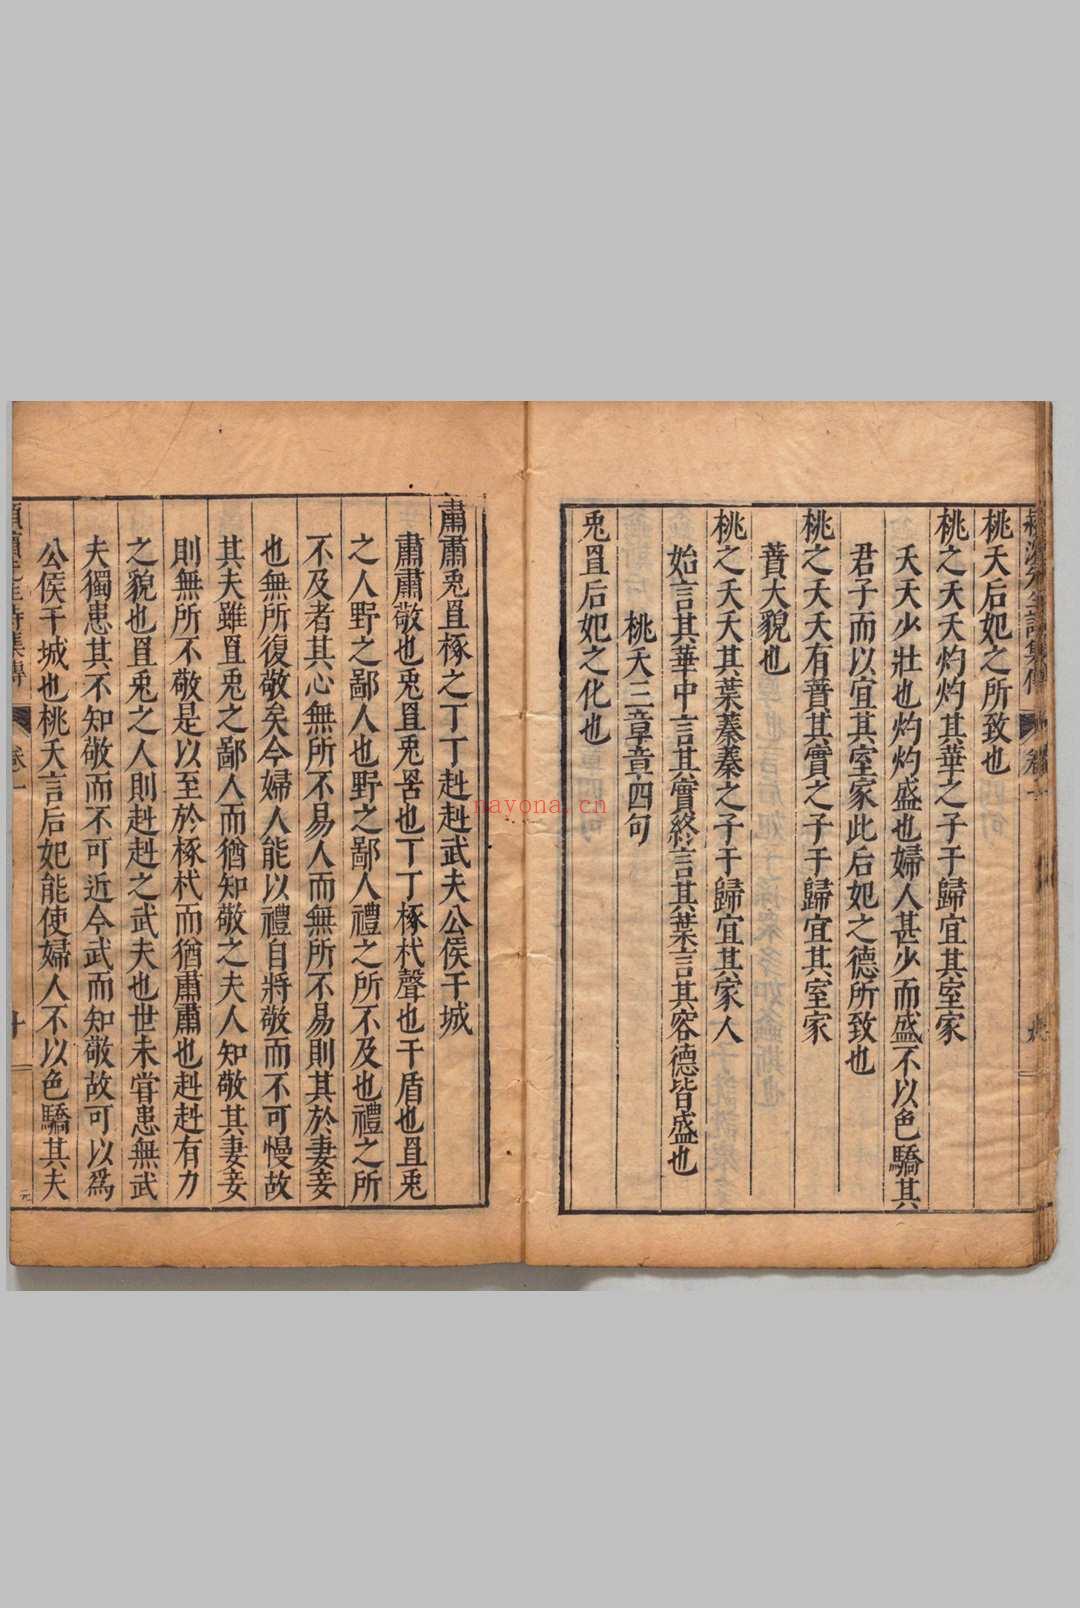 桃夭后妃之所致也
桃之夭夭灼灼其華之子于歸宜其室家
夭夭少壯也灼灼盛也婦人甚少而盛不以色驕其
君子而以宜其室家此后妃之德所致也
桃之夭夭有蕡其實之子于歸宜其室家
蕡大貌也
桃之夭夭其葉蓁蓁之子于歸宜其家人
始言其華中言其實終言其葉言其容德皆盛也
桃夭三章章四句
兎罝后妃之化也
肅肅兎罝椓之丁丁赳赳武夫公侯干城
肅肅敬也兎罝兎罟也丁丁椓杙聲也干盾也罝兎
之人野之鄙人也野之鄙人禮之所不及也禮之所
不及者其心無所不易人而無所不易則其於妻妾
也無所復敬矣今婦人能以禮自將敬而不可慢故
其夫雖罝兎之鄙人而猶知敬之夫人知敬其妻妾
則無所不敬是以至於椓杙而猶肅肅也赳赳有力
之貌也罝兎之人則赳赳之武夫也世未甞患無武
夫獨患其不知敬而不可近今武而知敬故可以爲
公侯干城也桃夭言后妃能使婦人不以色驕其夫
潁濱先生詩集傳 卷一 十
nayona.cn